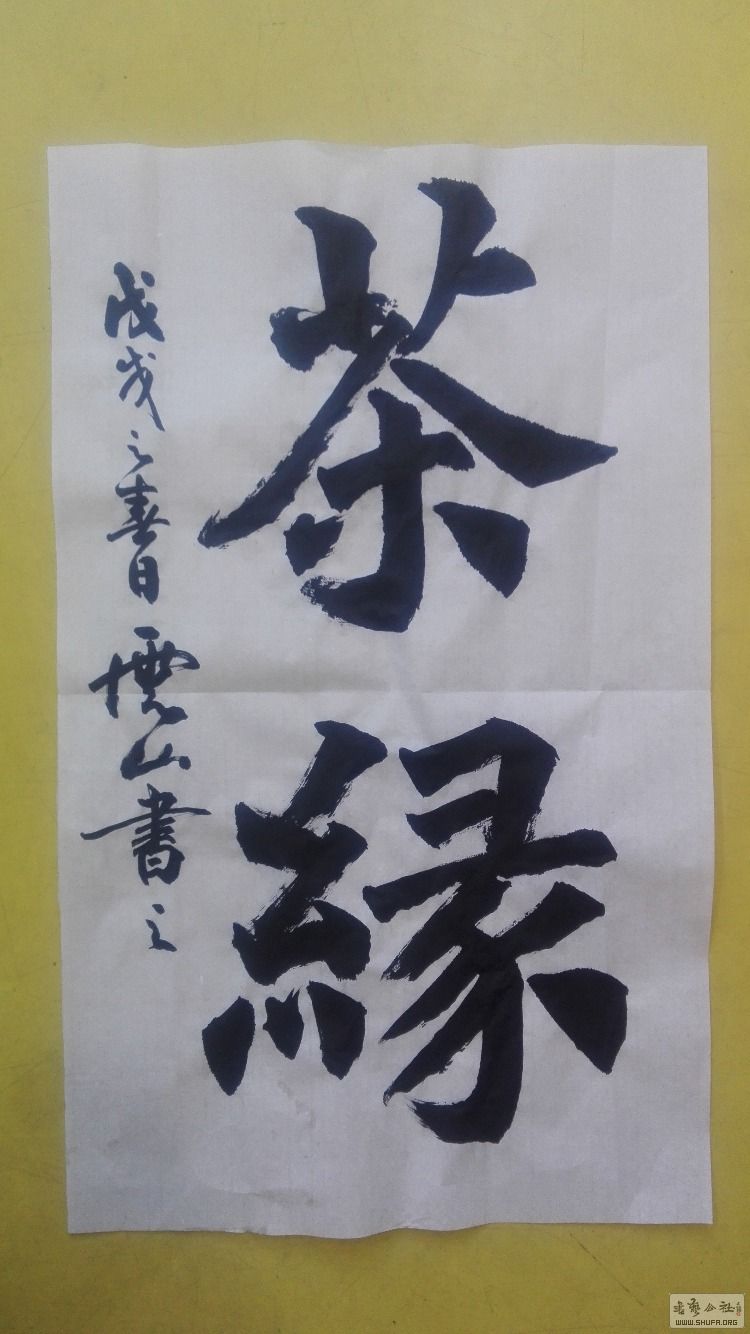 茶縁
戊戌之春日 雲山書之
书艺公社
WWW.SHUFA.ORG